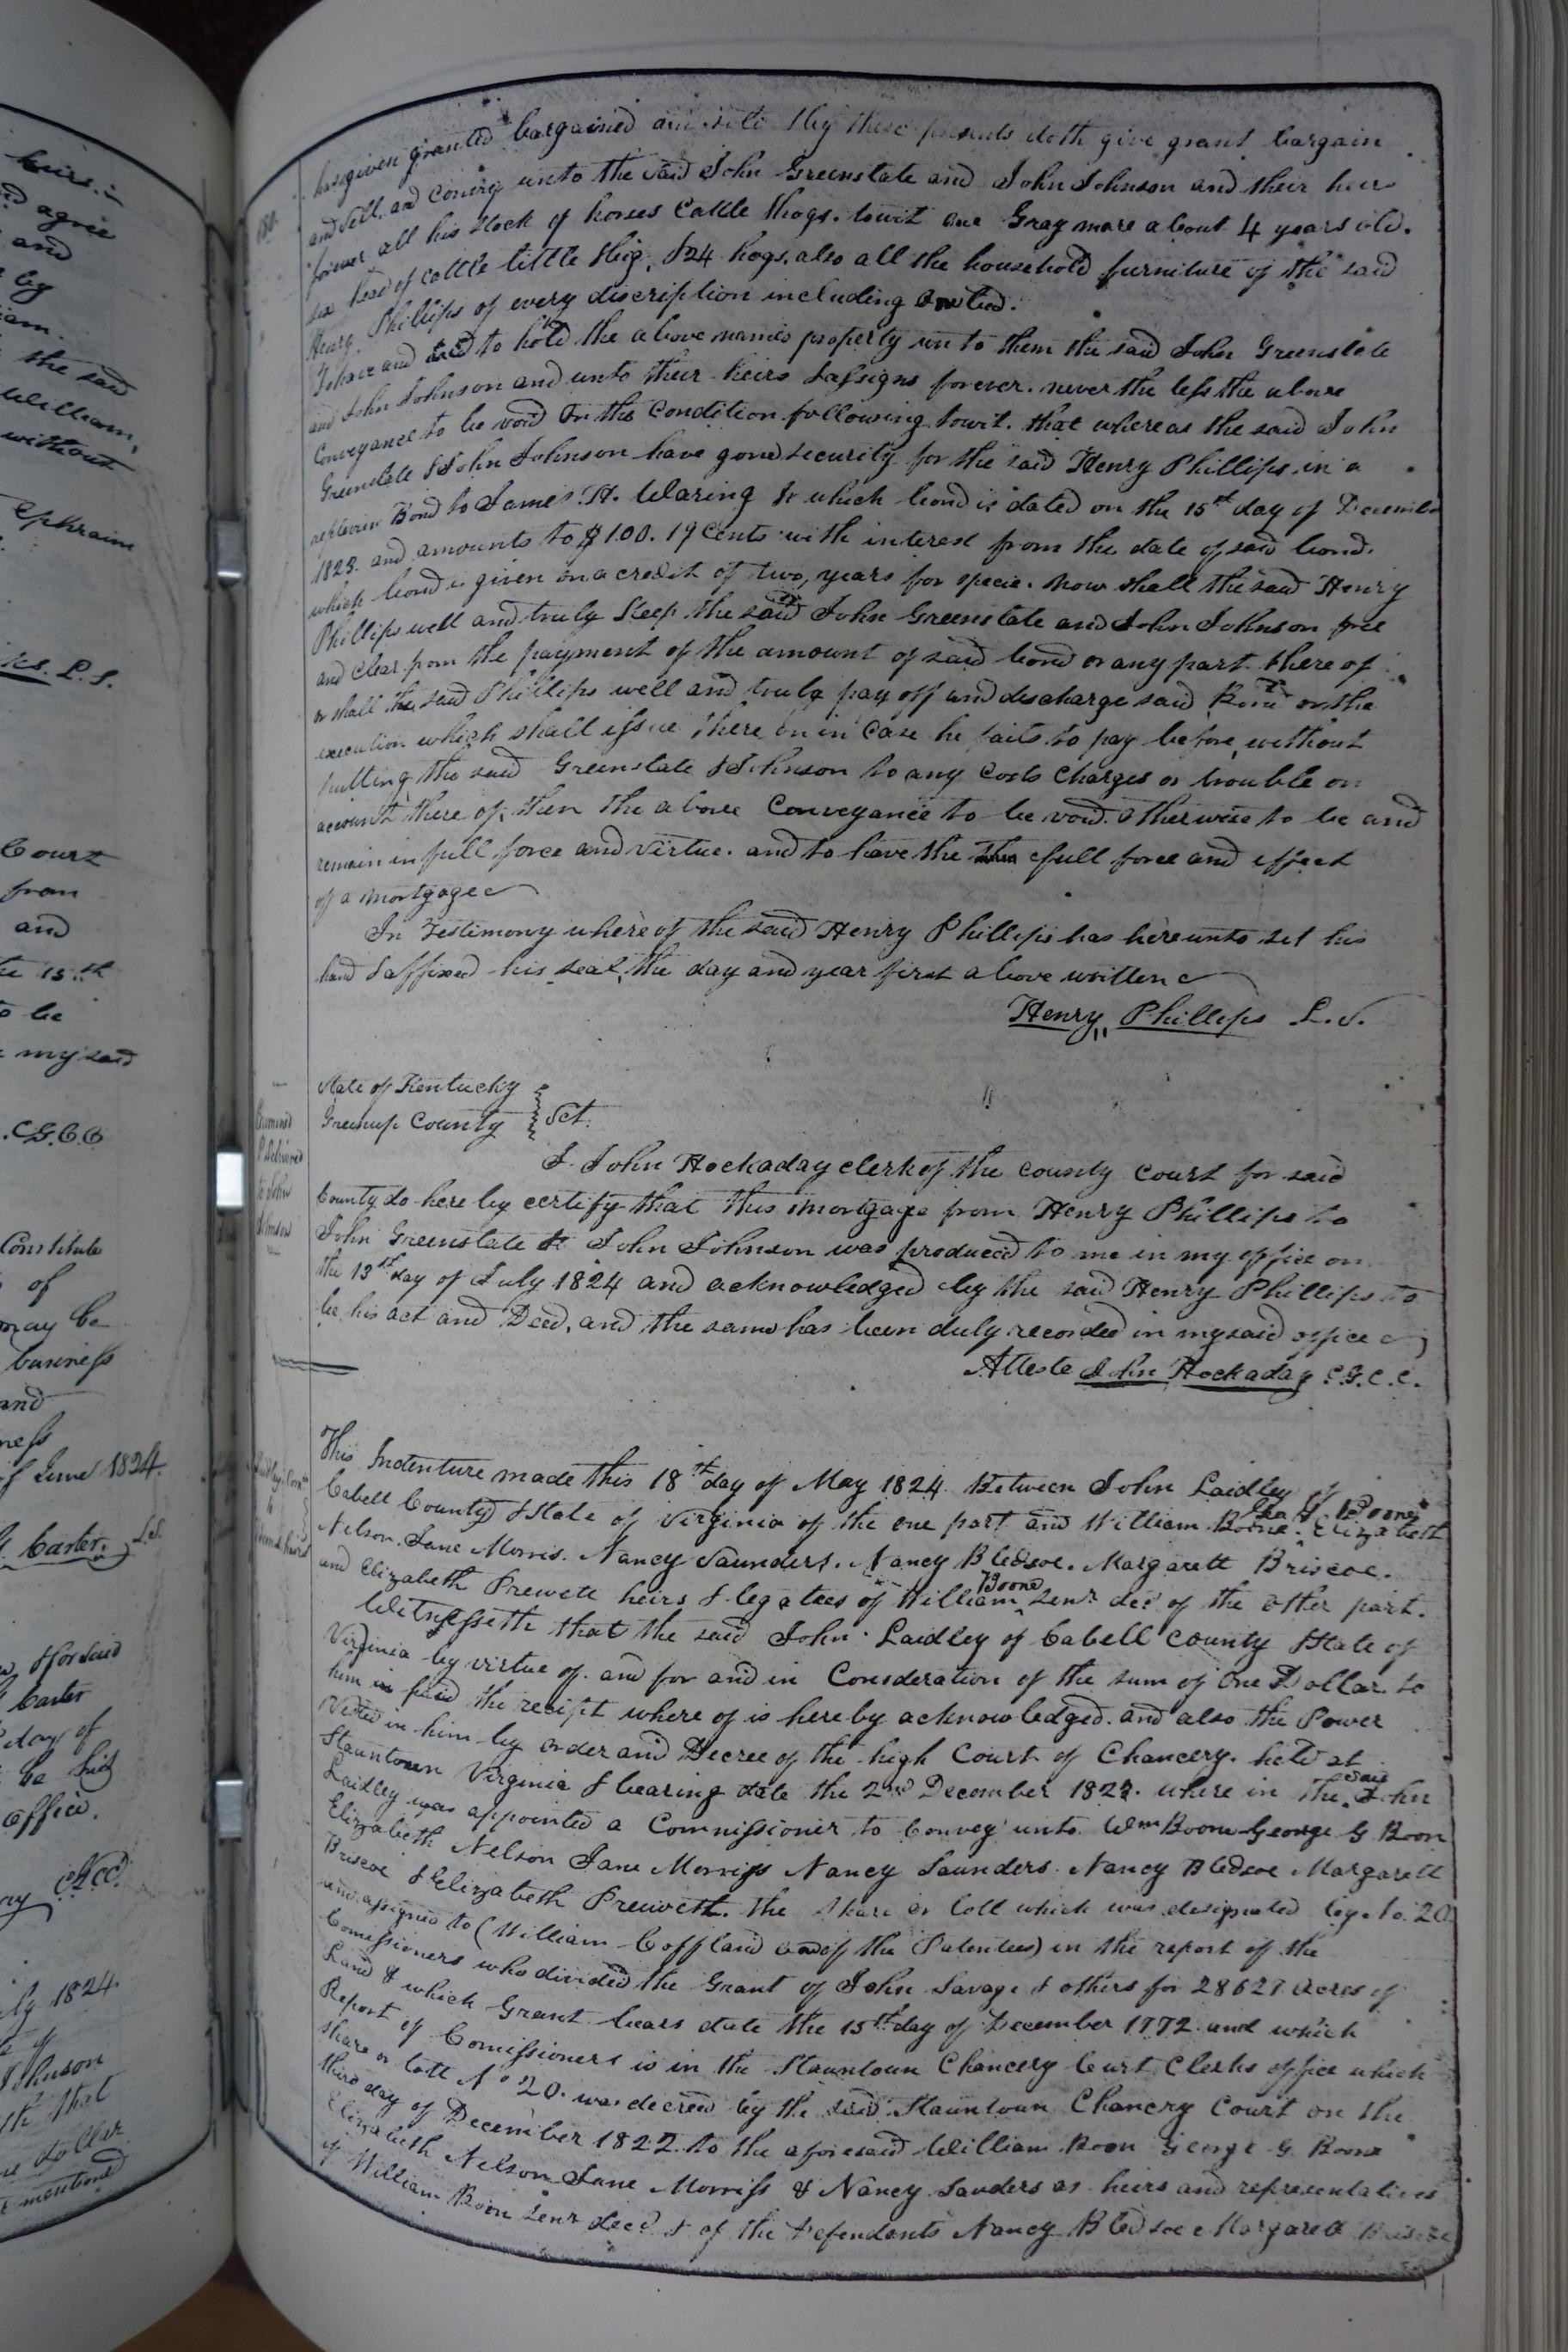 heirs
agree
and
by
the said
William,
without
Ephraim
L.S.
Court
from
and
15th
to be
my said
C.G.C.C
Constitute
of
may be
business
and
ness
of June 1824.
Carter. L.S.
for said
Carter
day of
be his
office.
July 1824
Johnson
that
dollar
mentioned
180.
has given granted bargained and sold & by these presents doth give grant bargain
and sell, and convey unto the said John Greenslate and John Johnson and their heirs
forever all his stock of horses Cattle & hogs. towit one Gray mare about 4 years old.
six head of cattle little & big, & 24 hogs, also all the household furniture of the said
Henry Phillips of every discription including
To have and to hold the above named property unto them the said John Greenslate
and John Johnson and unto their heirs & assigns forever. never the less the above
Conveyance to be void on the Condition following towit. that whereas the said John
Greenslate & John Johnson have gone security for the said Henry Phillips in a
replevin Bond to James H. Waring & which bond is dated on the 15th day of December
1823. and amounts to $100. 19 Cents with interest from the date of said bond.
which bond is given on a credit of two years for specie. now shall the said Henry
Phillips well and truly keep the said John Greenslate and John Johnson free
and clear from the payment of the amount of said bond or any part there of
or shall the said Phillips well and truly pay off and discharge said Bond or the
execution which shall issue there on in Case he fails to pay before without
putting the said Greenslate & Johnson to any Costs Charges or trouble on
account there of, then the above Conveyance to be void. Otherwise to be and
remain in full force and virtue. and to have the full force and effect
of a mortgage
In Testimony where of the said Henry Phillips has here unto set his
hand & affixed his seal, the day and year first above written
Henry Phillips L.S.
State of Kentucky
Greenup County } Sct.
Examined
& Delivered
to John
Johnson
I John Hockaday clerk of the county court for said
County do here by certify that this mortgage from Henry Phillips to
John Greenslate & John Johnson was produced to me in my office on
the 13th day of July 1824 and acknowledged by the said Henry Phillips to
be his act and Deed, and the same has been duly recorded in my said office
Atteste John Hockaday C.G.C.C.
This Indenture made this 18th day of May 1824 Between John Laidley of
Cabell County & State of Virginia of the one part and William Boone Geo G Boone Elizabeth
Nelson. Jane Morris. Nancy Saunders. Nancy Bledsoe. Margarett Briscoe.
and Elizabeth Prewett heirs & legatees of William Boone Senr decd of the other part.
Witnesseth that the said John Laidley of Cabell County & State of
Virginia by virtue of. and for and in Consideration of the sum of One Dollar to
him in paid the receipt where of is here by acknowledged. and also the Power
Vested in him by order and Decree of the high Court of Chancery. held at
Stauntown Virginia & bearing date the 2nd December 1823. where in the said John
Laidley was appointed a Commissioner to Convey unto Wm Boone George G Boon
Elizabeth Nelson Jane Morriss Nancy Saunders. Nancy Bledsoe Margarett
Briscoe & Elizabeth Prewett. the share or lott which was designated by. No. 20
and assigned to (William Coffland one of the Patentees) in the report of the
Comissioners who divided the Grant of John Savage & others for 28627 Acres of
Land & which Grant bears date the 15th day of December 1772 and which
Report of Comissioners is in the Stauntoun Chancery Court Clerks office which
share or lott No 20. was decreed by the said Stauntoun Chancery Court on the
third day of December 1822 to the aforesaid William Boon George G Boone
Elizabeth Nelson Jane Morriss & Nancy Sanders as heirs and representatives
of William Boon Senr decd & of the Defendants Nancy Bledsoe Margarett Briscoe